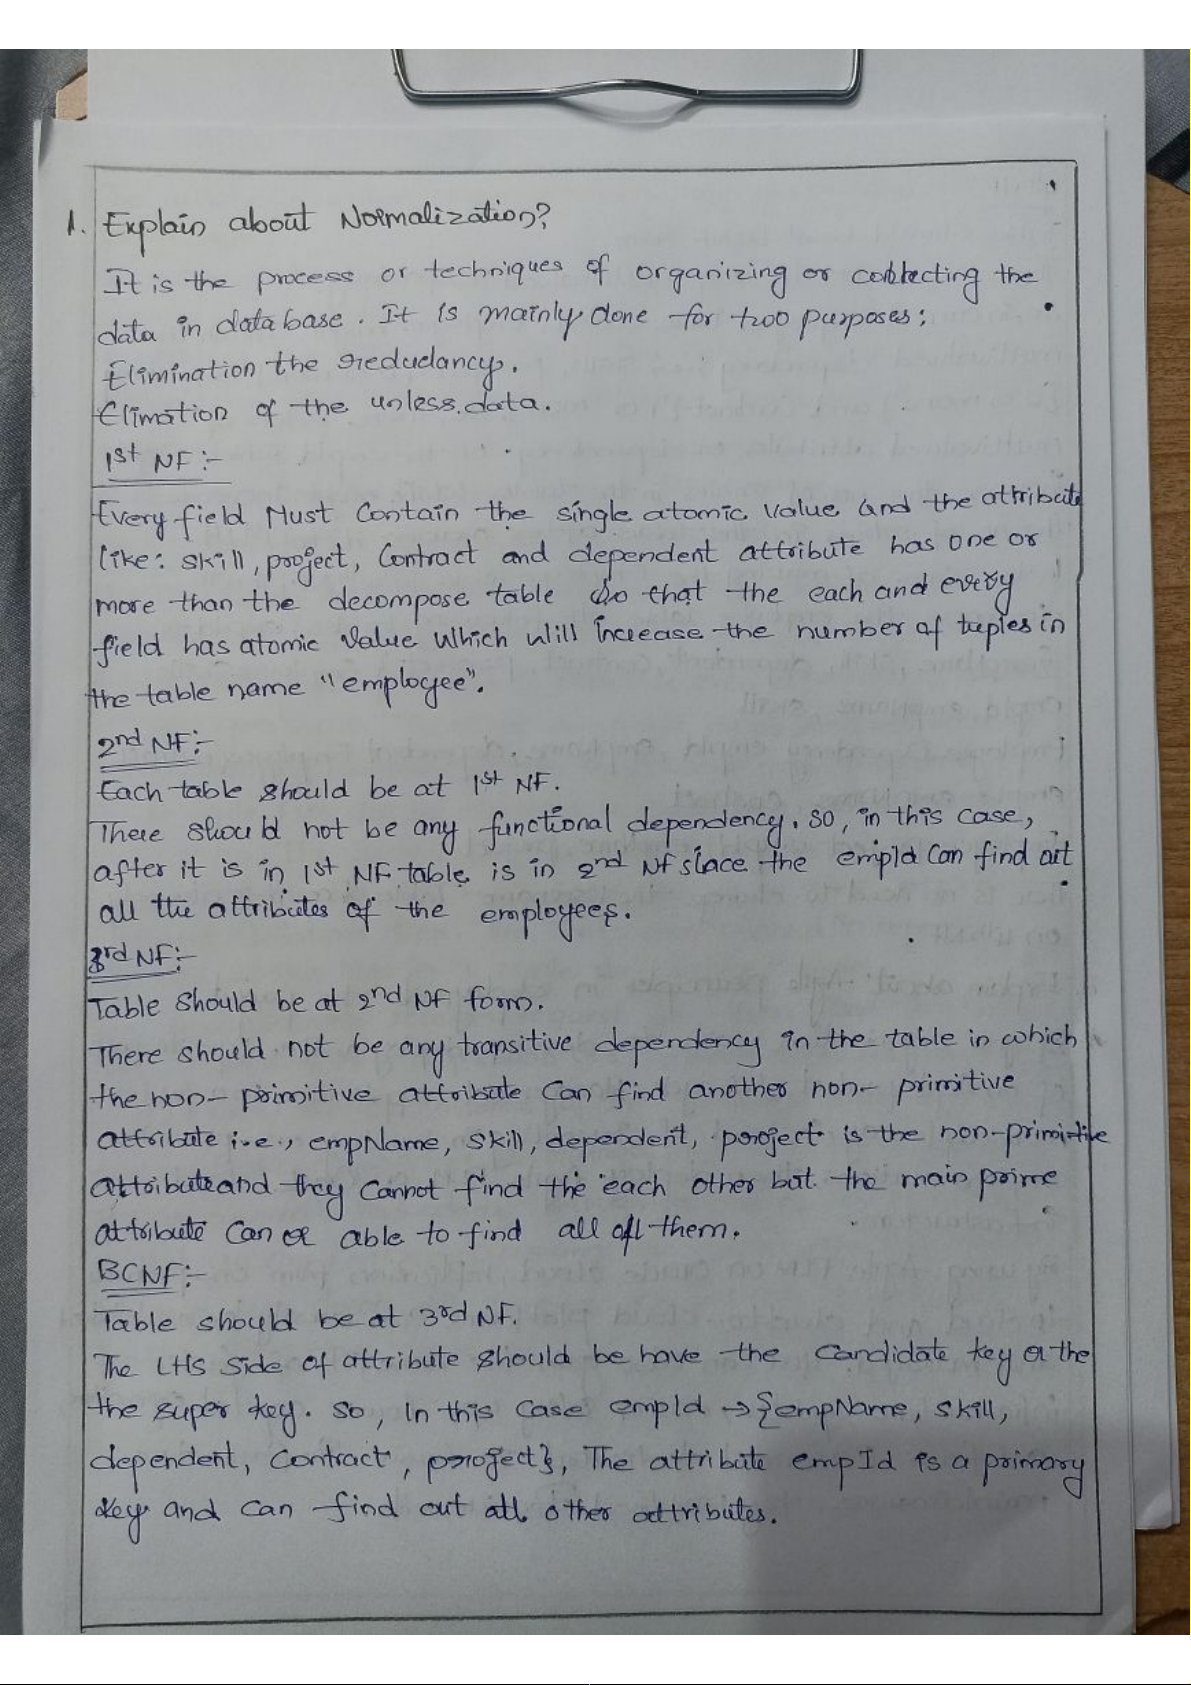 1. Explain about Normalization?
It is the process or techniques of organizing or collecting the
data in database. It is mainly done for two purposes:
Elimination the redudancy.
Climation of the unless data.
1st NF:-
Every field Must Contain the single atomic value and the attribute
like: skill, project, Contract and dependent attribute has one or
more than the decompose table So that the each and every
field has atomic value Which will increase the number of tuples in
the table name "employee".
2nd NF:-
Each table should be at 1st NF.
There should not be any functional dependency. So, in this case,
after it is in 1st NF table is in 2nd NF since the empId Can find out
all the attributes of the employees.
3rd NF:-
Table should be at 2nd NF form.
There should not be any transitive dependency in the table in which
the non-primitive attribute Can find another non-primitive
attribute i.e., empName, skill, dependent, project is the non-primitive
attribute and they cannot find the each other but the main prime
attribute Can able to find all of them.
BCNF:-
Table should be at 3rd NF.
The LHS Side of attribute should be have the Candidate key or the
the super key. So, In this Case empId → {empName, skill,
dependent, Contract, project}, The attribute empId is a primary
key and can find out all other attributes.